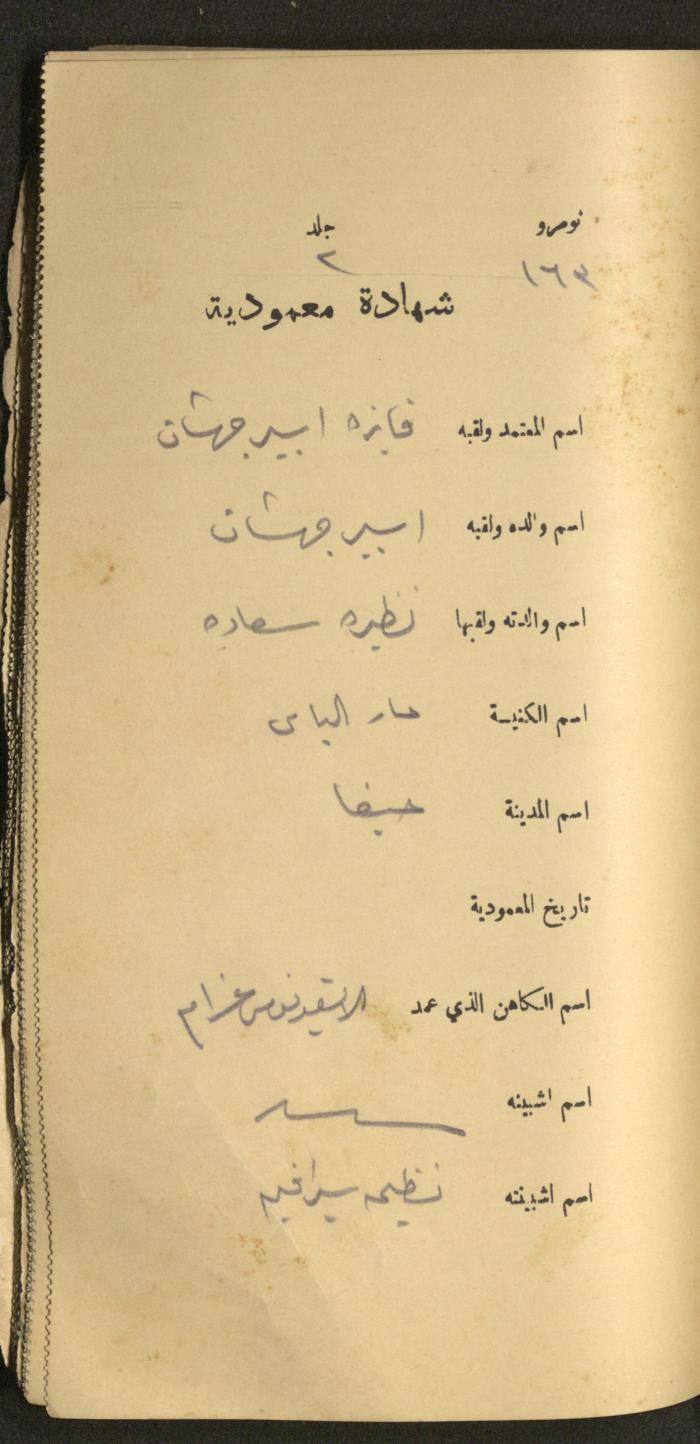 نومرو جلد
١٦٣ ٢
شهادة معمودية
اسم المعتمد ولقبه فايزه ابير جهشان
اسم والده ولقبه ابير جهشان
اسم والدته ولقبها نظيره سعاده
اسم الكنيسة مار الياس
اسم المدينة حيفا
تاريخ المعمودية
اسم الكاهن الذي عمد
اسم اشبينه
اسم اشبينته نظيمه